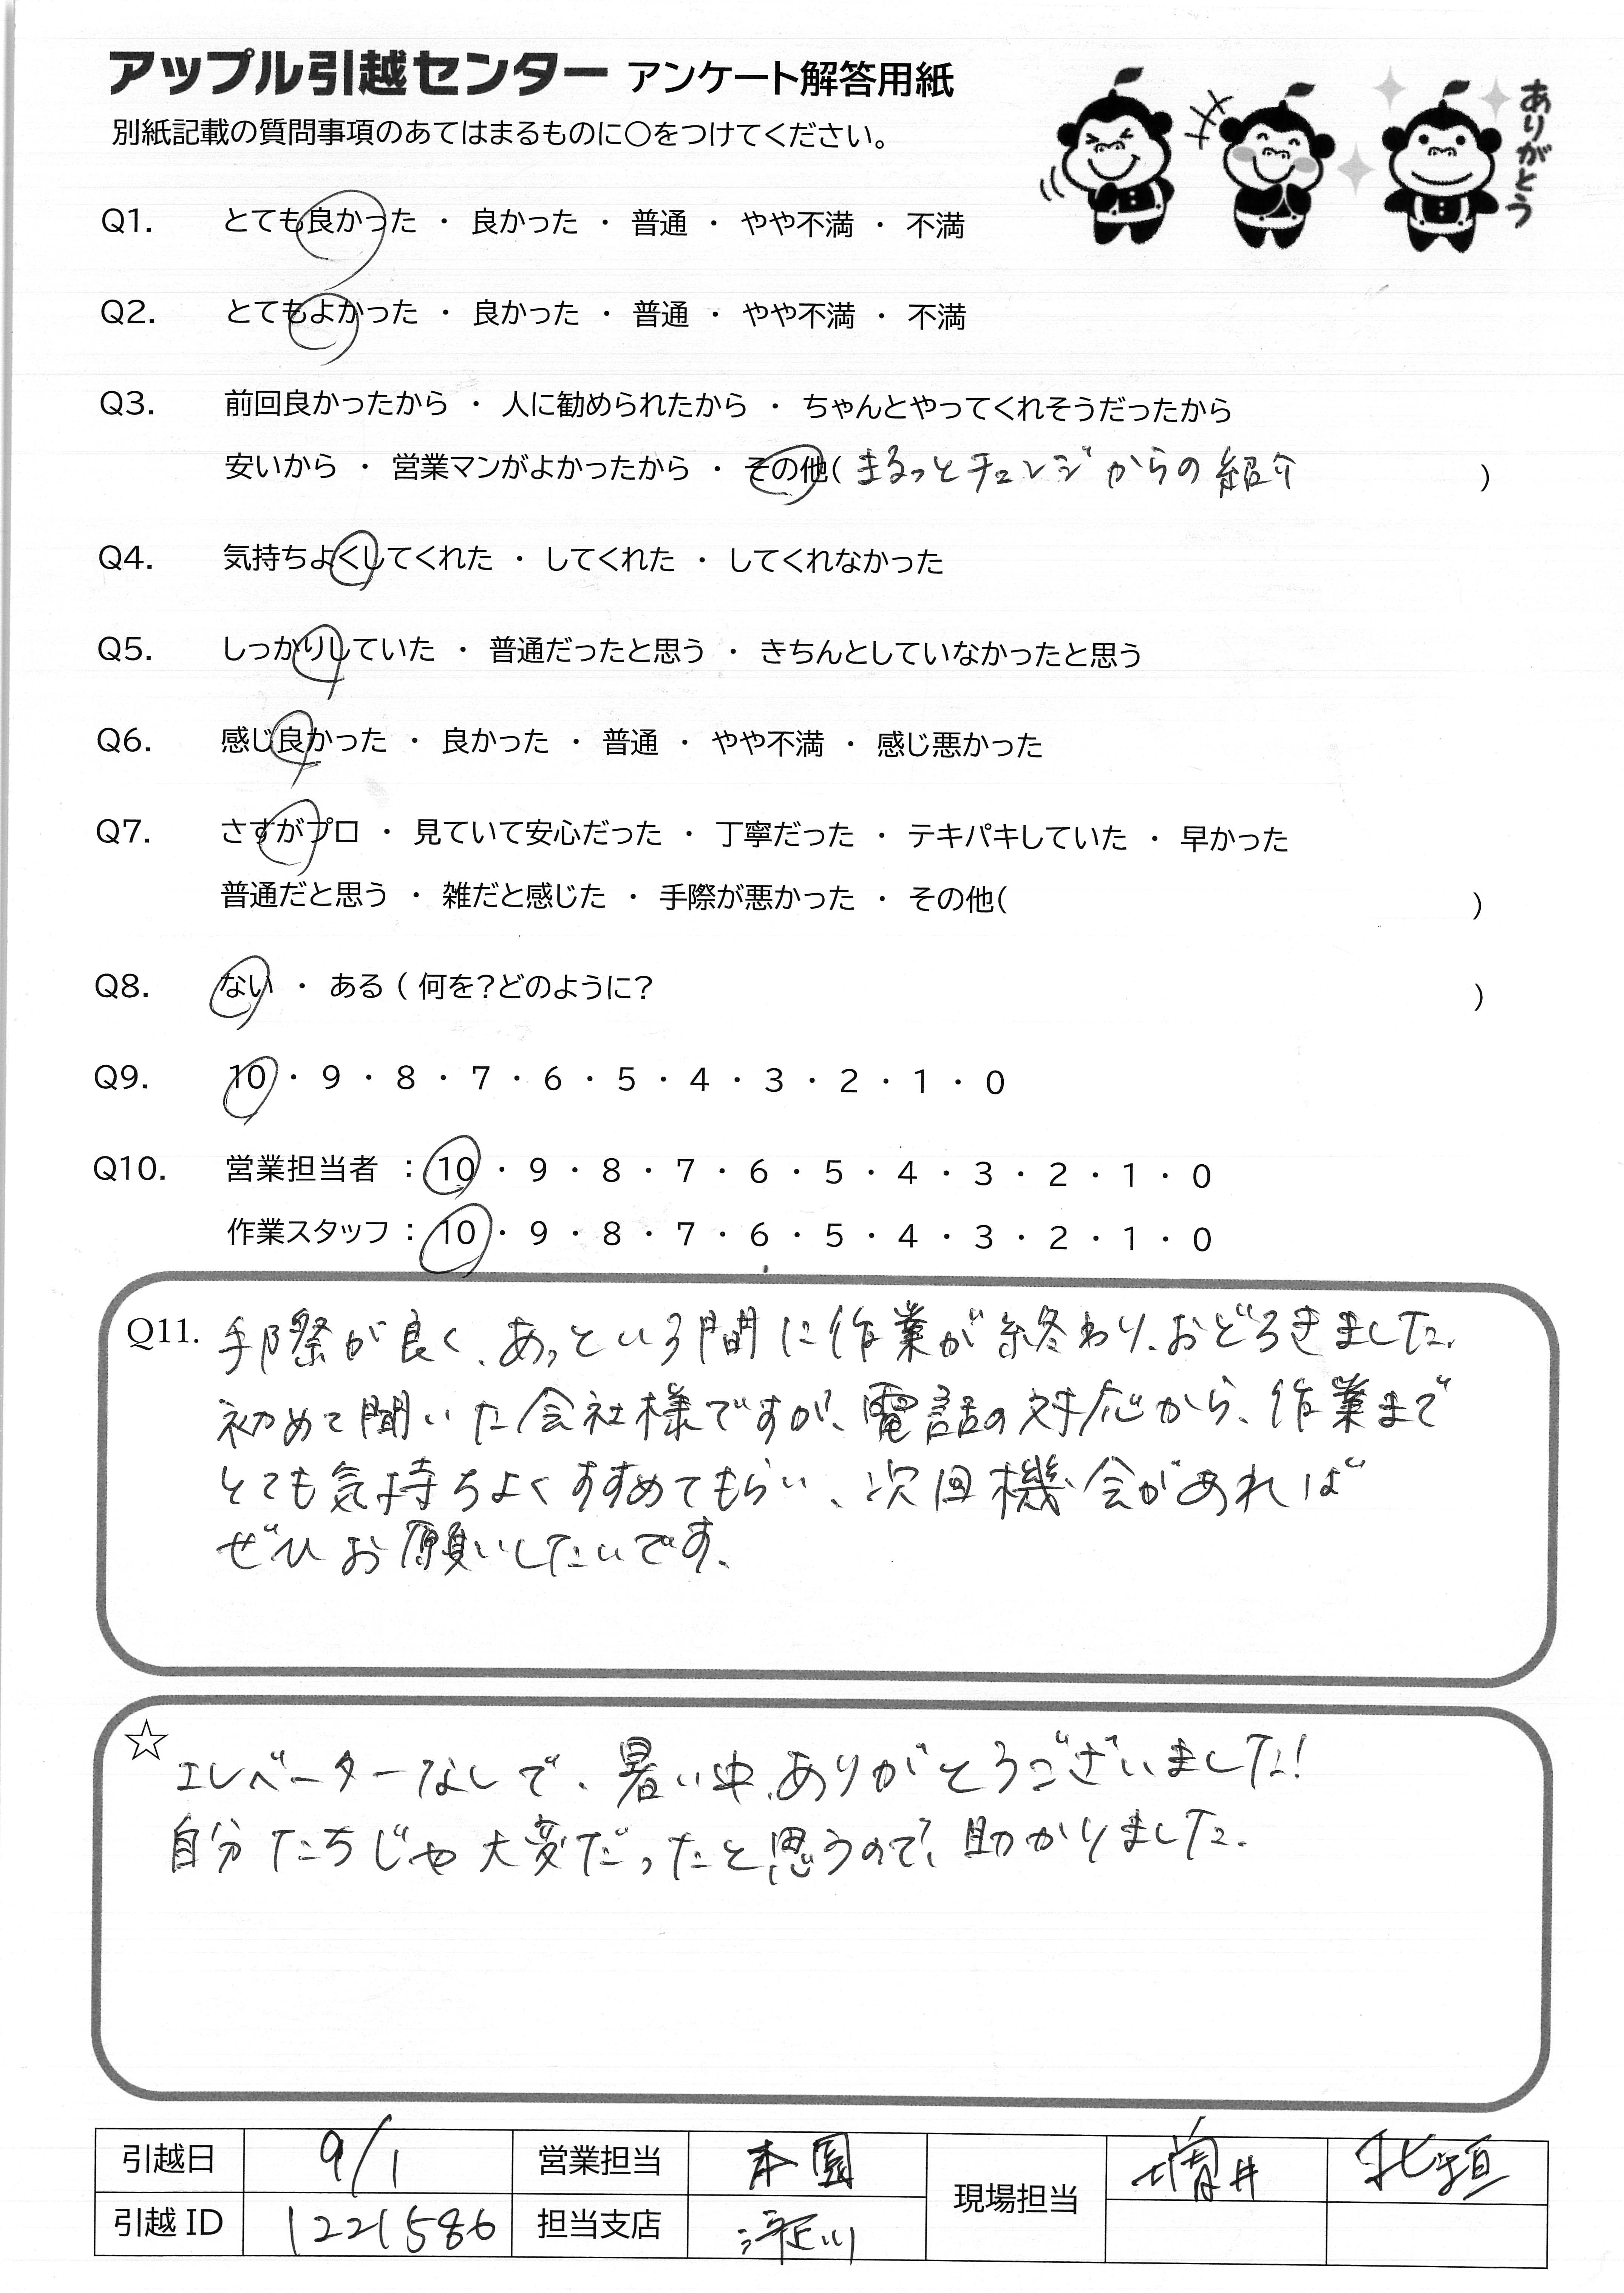 アップル引越センター アンケート解答用紙
別紙記載の質問事項のあてはまるものに○をつけてください。
ありがとう
Q1. とても良かった ・ 良かった ・ 普通 ・ やや不満 ・ 不満
Q2. とてもよかった ・ 良かった ・ 普通 ・ やや不満 ・ 不満
Q3. 前回良かったから ・ 人に勧められたから ・ ちゃんとやってくれそうだったから
安いから ・ 営業マンがよかったから ・ その他( まるっとチェンジからの紹介 )
Q4. 気持ちよくしてくれた ・ してくれた ・ してくれなかった
Q5. しっかりしていた ・ 普通だったと思う ・ きちんとしていなかったと思う
Q6. 感じ良かった ・ 良かった ・ 普通 ・ やや不満 ・ 感じ悪かった
Q7. さすがプロ ・ 見ていて安心だった ・ 丁寧だった ・ テキパキしていた ・ 早かった
普通だと思う ・ 雑だと感じた ・ 手際が悪かった ・ その他( )
Q8. ない ・ ある ( 何を？どのように？ )
Q9. 10 ・ 9 ・ 8 ・ 7 ・ 6 ・ 5 ・ 4 ・ 3 ・ 2 ・ 1 ・ 0
Q10. 営業担当者 : 10 ・ 9 ・ 8 ・ 7 ・ 6 ・ 5 ・ 4 ・ 3 ・ 2 ・ 1 ・ 0
作業スタッフ : 10 ・ 9 ・ 8 ・ 7 ・ 6 ・ 5 ・ 4 ・ 3 ・ 2 ・ 1 ・ 0
Q11. 手際が良く、あっという間に作業が終わり、おどろきました。
初めて聞いた会社様ですが、電話の対応から、作業まで
とても気持ちよくすすめてもらい、次回機会があれば
ぜひお願いしたいです。
☆ エレベーターなしで、暑い中、ありがとうございました!
自分たちじゃ大変だったと思うので、助かりました。
引越日 9/1 営業担当 本園 現場担当 増井 北垣
引越 ID 1221586 担当支店 淀川